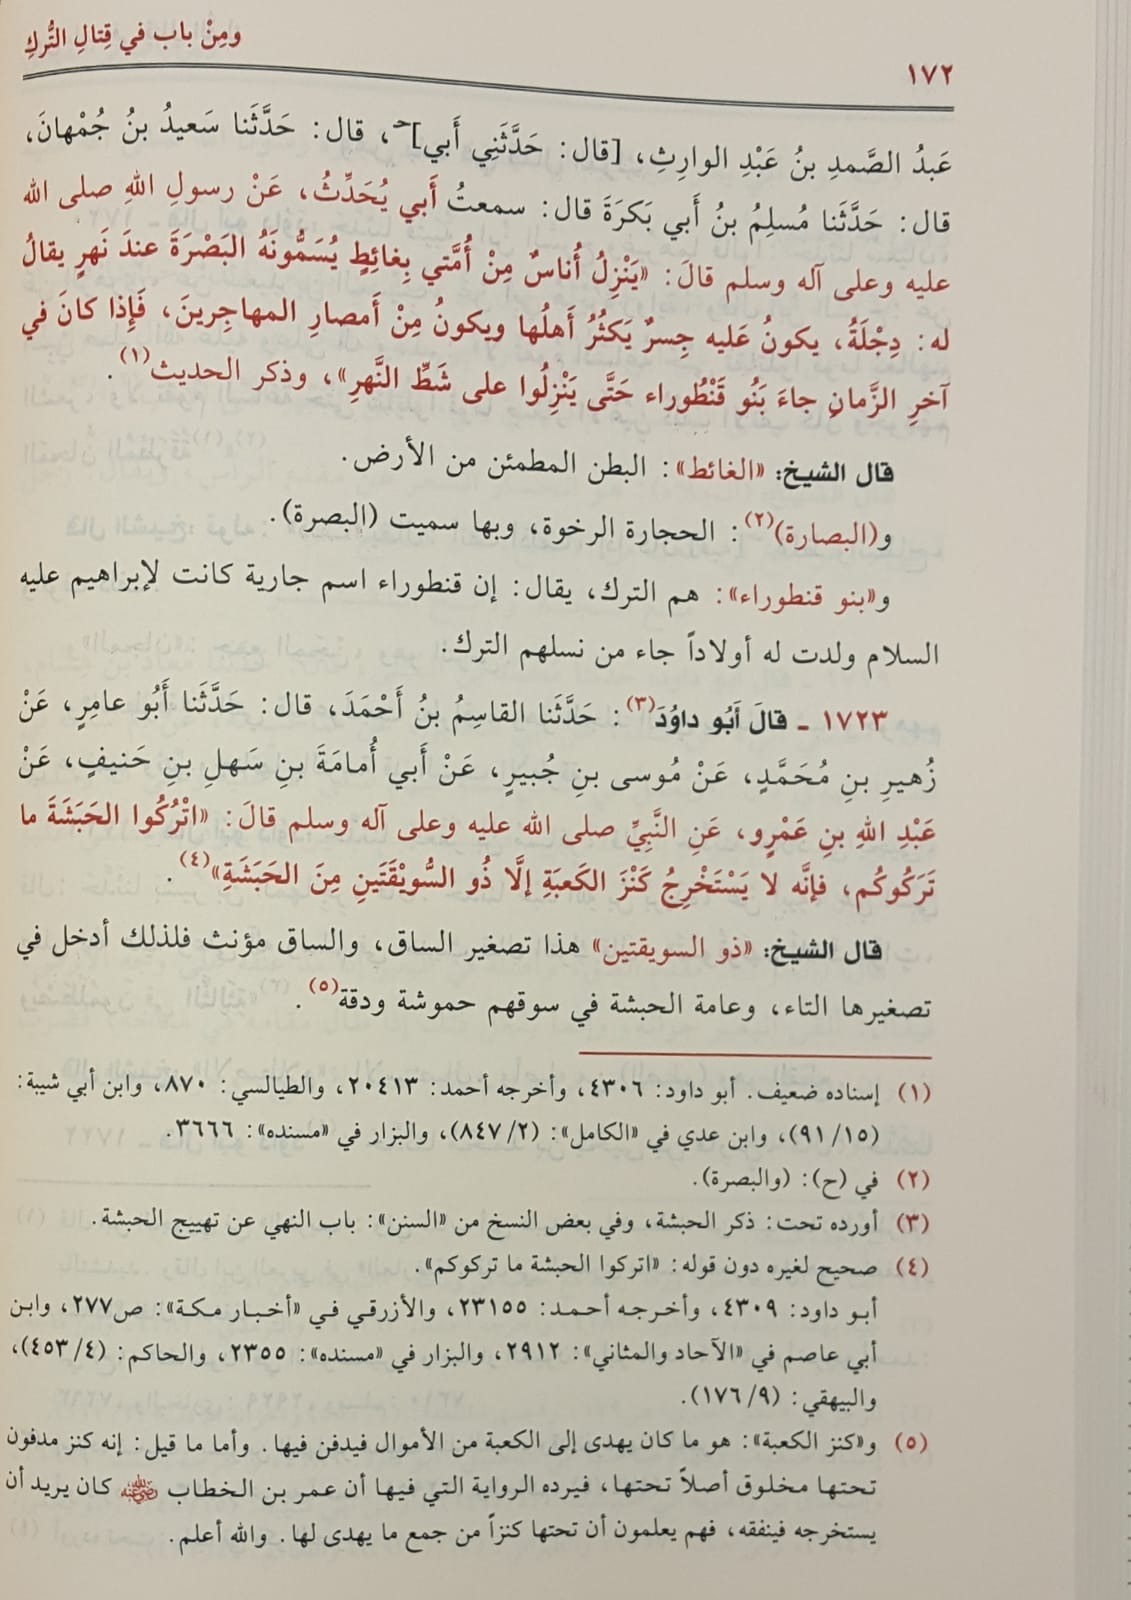 ومِنْ باب في قِتالِ التُّركِ
١٧٢
عَبدُ الصَّمدِ بنُ عَبْدِ الوارِثِ، [قال: حَدَّثَنِي أَبي]ح، قال: حَدَّثَنا سَعيدُ بنُ جُمْهانَ،
قال: حَدَّثَنا مُسلِمُ بنُ أَبي بَكرَةَ قال: سمعتُ أَبي يُحَدِّثُ، عَنْ رسولِ اللهِ صلى الله
عليه وعلى آله وسلم قالَ: «يَنْزِلُ أُناسٌ مِنْ أُمَّتي بِغائِطٍ يُسَمُّونَهُ البَصْرَةَ عندَ نَهرٍ يقالُ
له: دِجْلَةُ، يكونُ عَليه جِسرٌ يَكثُرُ أَهلُها ويكونُ مِنْ أَمصارِ المهاجِرينَ، فَإِذا كانَ في
آخرِ الزَّمانِ جاءَ بَنُو قَنْطُوراء حَتَّى يَنْزِلُوا على شَطِّ النَّهرِ»، وذكر الحديث(١).
قال الشيخ: «الغائط»: البطن المطمئن من الأرض.
و(البصارة)(٢): الحجارة الرخوة، وبها سميت (البصرة).
و«بنو قنطوراء»: هم الترك، يقال: إن قنطوراء اسم جارية كانت لإبراهيم عليه
السلام ولدت له أولاداً جاء من نسلهم الترك.
١٧٢٣ ـ قالَ أَبُو داوُدَ(٣): حَدَّثَنا القاسِمُ بنُ أَحْمَدَ، قال: حَدَّثَنا أَبُو عامِرٍ، عَنْ
زُهيرِ بنِ مُحَمَّدٍ، عَنْ مُوسى بنِ جُبيرٍ، عَنْ أَبي أُمامَةَ بنِ سَهلِ بنِ حَنيفٍ، عَنْ
عَبْدِ اللهِ بنِ عَمْرٍو، عَنِ النَّبِيِّ صلى الله عليه وعلى آله وسلم قالَ: «اتْرُكُوا الحَبَشَةَ ما
تَرَكُوكُم، فإنَّه لا يَسْتَخْرِجُ كَنْزَ الكَعبَةِ إلَّا ذُو السُّويْقَتَينِ مِنَ الحَبَشَةِ»(٤).
قال الشيخ: «ذو السويقتين» هذا تصغير الساق، والساق مؤنث فلذلك أدخل في
تصغيرها التاء، وعامة الحبشة في سوقهم حموشة ودقة(٥).
(١) إسناده ضعيف. أبو داود: ٤٣٠٦، وأخرجه أحمد: ٢٠٤١٣، والطيالسي: ٨٧٠، وابن أبي شيبة:
(٩١/١٥)، وابن عدي في «الكامل»: (٨٤٧/٢)، والبزار في «مسنده»: ٣٦٦٦.
(٢) في (ح): (والبصرة).
(٣) أورده تحت: ذكر الحبشة، وفي بعض النسخ من «السنن»: باب النهي عن تهييج الحبشة.
(٤) صحيح لغيره دون قوله: «اتركوا الحبشة ما تركوكم».
أبو داود: ٤٣٠٩، وأخرجه أحمد: ٢٣١٥٥، والأزرقي في «أخبار مكة»: ص٢٧٧، وابن
أبي عاصم في «الآحاد والمثاني»: ٢٩١٢، والبزار في «مسنده»: ٢٣٥٥، والحاكم: (٤٥٣/٤)،
والبيهقي: (١٧٦/٩).
(٥) و«كنز الكعبة»: هو ما كان يهدى إلى الكعبة من الأموال فيدفن فيها. وأما ما قيل: إنه كنز مدفون
تحتها مخلوق أصلاً تحتها، فيرده الرواية التي فيها أن عمر بن الخطاب رضي الله عنه كان يريد أن
يستخرجه فينفقه، فهم يعلمون أن تحتها كنزاً من جمع ما يهدى لها. والله أعلم.